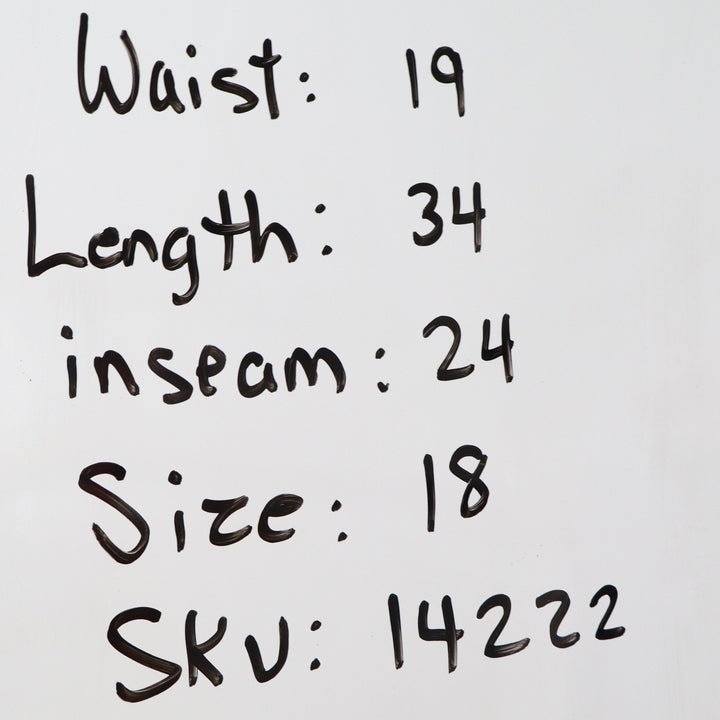 Waist: 19
Length: 34
inseam: 24
Size: 18
SKU: 14222